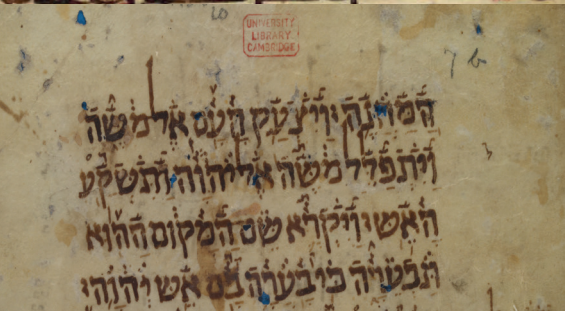 UNIVERSITY
LIBRARY
CAMBRIDGE
7 b
המחנה׃ ויצעק העם אל משה
ויתפלל משה אל יהוה ותשקע
האש׃ ויקרא שם המקום ההוא
תבערה כי בערה בם אש יהוה׃